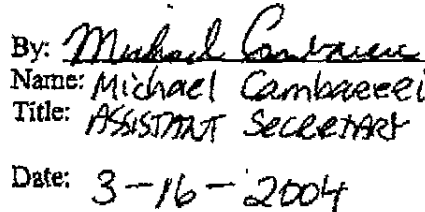 By: Michael Cambareri
Name: Michael Cambareri
Title: ASSISTANT SECRETARY
Date: 3-16-2004